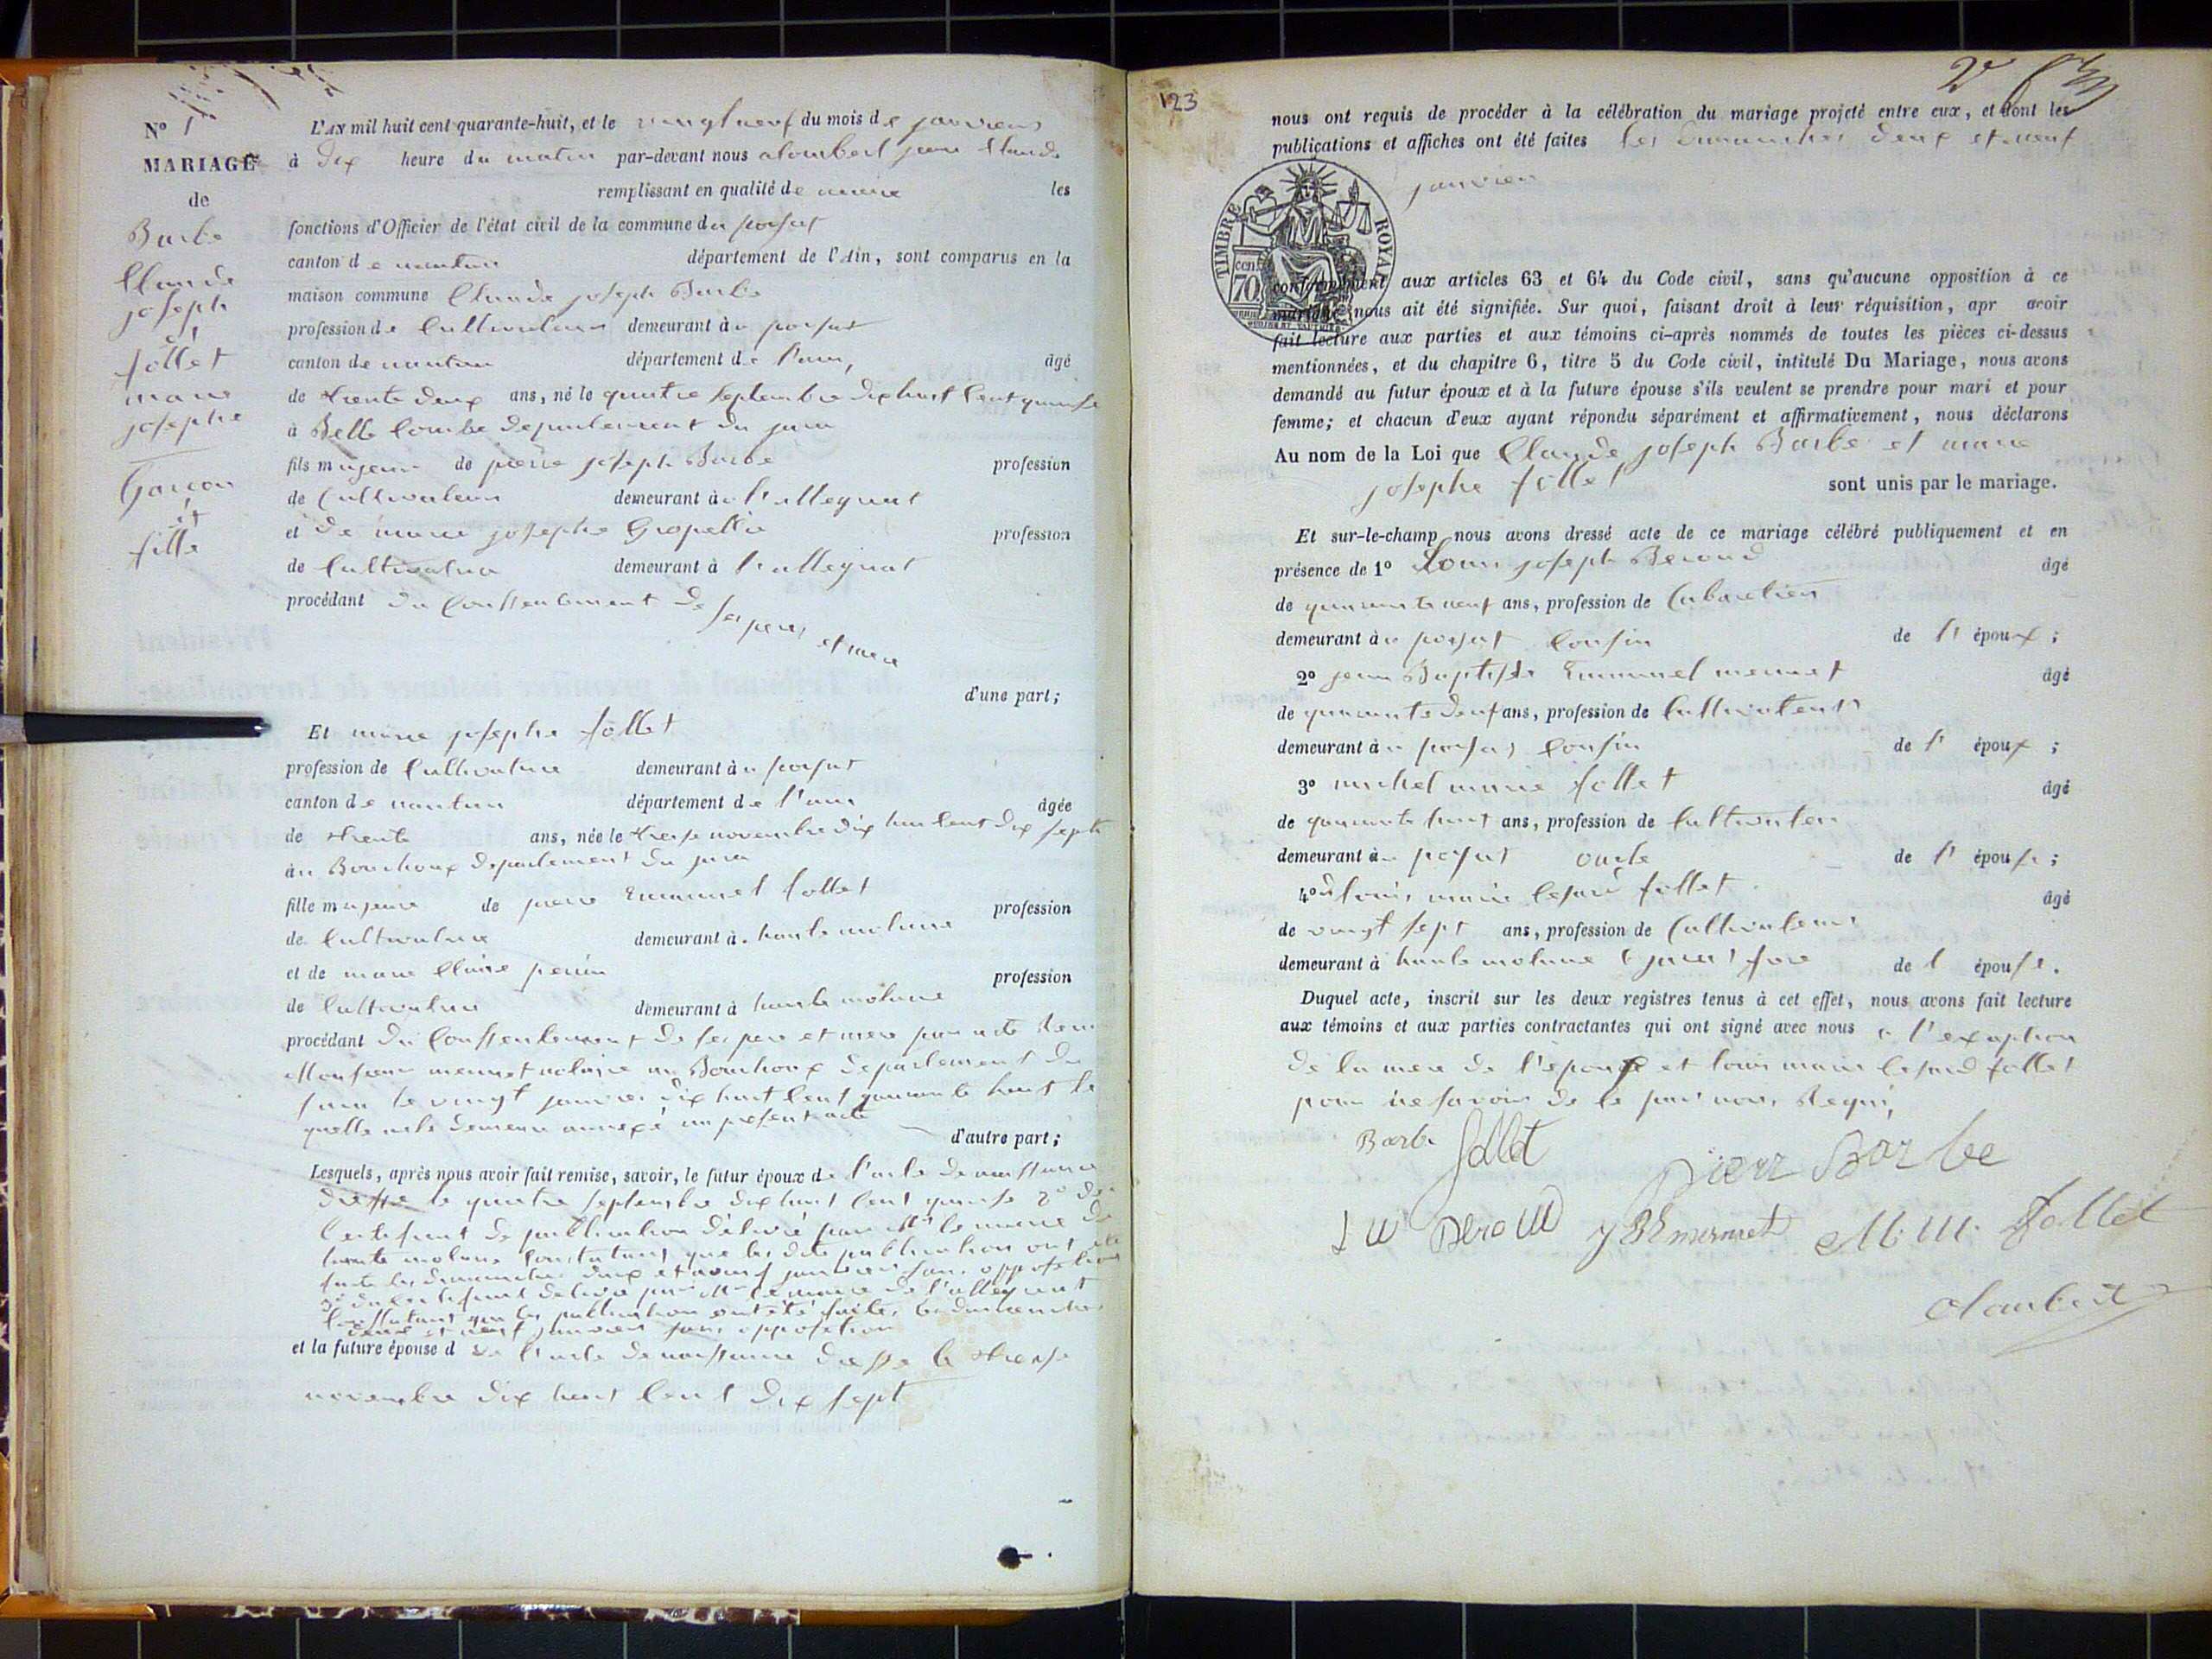 N° 1
MARIAGE
de
Barbe
Claude
joseph
et
follet
marie
josephe
Garcon
et
fille
L'AN mil huit cent quarante-huit, et le vingt neuf du mois de janvier
à dix heure du matin par-devant nous alombert jean Claude
remplissant en qualité de maire les
fonctions d'Officier de l'état civil de la commune du
canton de nantua département de l'Ain, sont comparus en la
maison commune Claude joseph Barbe
profession de Cultivateur demeurant à
canton de nantua département de l'ain, âgé
de trente deux ans, né le quatre septembre dix huit Cent quinse
à Belle Combe departement du jura
fils majeur de pierre joseph Barbe profession
de Cultivateur demeurant à l'allegnat
et de marie josephe Grospellier profession
de Cultivatrice demeurant à l'allegnat
procédant du Conssentement de ses pere et mere
d'une part;
Et marie josephe follet
profession de Cultivatrice demeurant à
canton de nantua département de l'ain âgée
de trente ans, née le treise novembre dix huit Cent dix sept
au Bouchoux departement du jura
fille majeure de pierre Emanuel follet profession
de Cultivateur demeurant à haute molune
et de marie Claire perrin profession
de Cultivatrice demeurant à haute molune
procédant du Conssentement de ses pere et mere par acte
Monsieur mermet notaire au Bouchoux departement du
jura le vingt janvier dix huit Cent quarante huit le
quelle acte demeure annexé au present acte
d'autre part;
Lesquels, après nous avoir fait remise, savoir, le futur époux de l'acte de naissance
dressé le quatre septembre dix huit Cent quinse 2° de
Certificat de publication délivré par Mr le maire de
haute molune Constatant que les dite publication ont été
faite les dimanches deux et neuf janvier sans opposition
3° du Certificat delivre par Mr le maire de l'allegnat
Constatant que les publication ont été faites les dimanches
deux et neuf janvier sans opposition
et la future épouse d de l'acte de naissance dressé le treise
novembre dix huit Cent dix sept
123
2e
nous ont requis de procéder à la célébration du mariage projeté entre eux, et dont les
publications et affiches ont été faites les dimanches deux et neuf
janvier
TIMBRE ROYAL
70 cent.
conformément aux articles 63 et 64 du Code civil, sans qu'aucune opposition à ce
mariage nous ait été signifiée. Sur quoi, faisant droit à leur réquisition, apr avoir
fait lecture aux parties et aux témoins ci-après nommés de toutes les pièces ci-dessus
mentionnées, et du chapitre 6, titre 5 du Code civil, intitulé Du Mariage, nous avons
demandé au futur époux et à la future épouse s'ils veulent se prendre pour mari et pour
femme; et chacun d'eux ayant répondu séparément et affirmativement, nous déclarons
Au nom de la Loi que Claude joseph Barbe et marie
josephe follet sont unis par le mariage.
Et sur-le-champ nous avons dressé acte de ce mariage célébré publiquement et en
présence de 1° Louis joseph Beroud âgé
de quarante neuf ans, profession de Cabaretier
demeurant à Cousin de l' époux;
2° jean Baptiste Emanuel mermet âgé
de quarante deux ans, profession de Cultivateur
demeurant à Cousin de l' époux;
3° michel marie follet âgé
de quarante huit ans, profession de Cultivateur
demeurant à oncle de l' épouse;
4° louis marie follet âgé
de vingt sept ans, profession de Cultivateur
demeurant à haute molune (jura) frere de l épouse.
Duquel acte, inscrit sur les deux registres tenus à cet effet, nous avons fait lecture
aux témoins et aux parties contractantes qui ont signé avec nous a l'exception
de la mere de l'epoux et louis marie follet
pour ne savoir de le par nous Requi,
Barbe follet pierr Barbe
Beroud J B E mermet M. M. follet
alombert